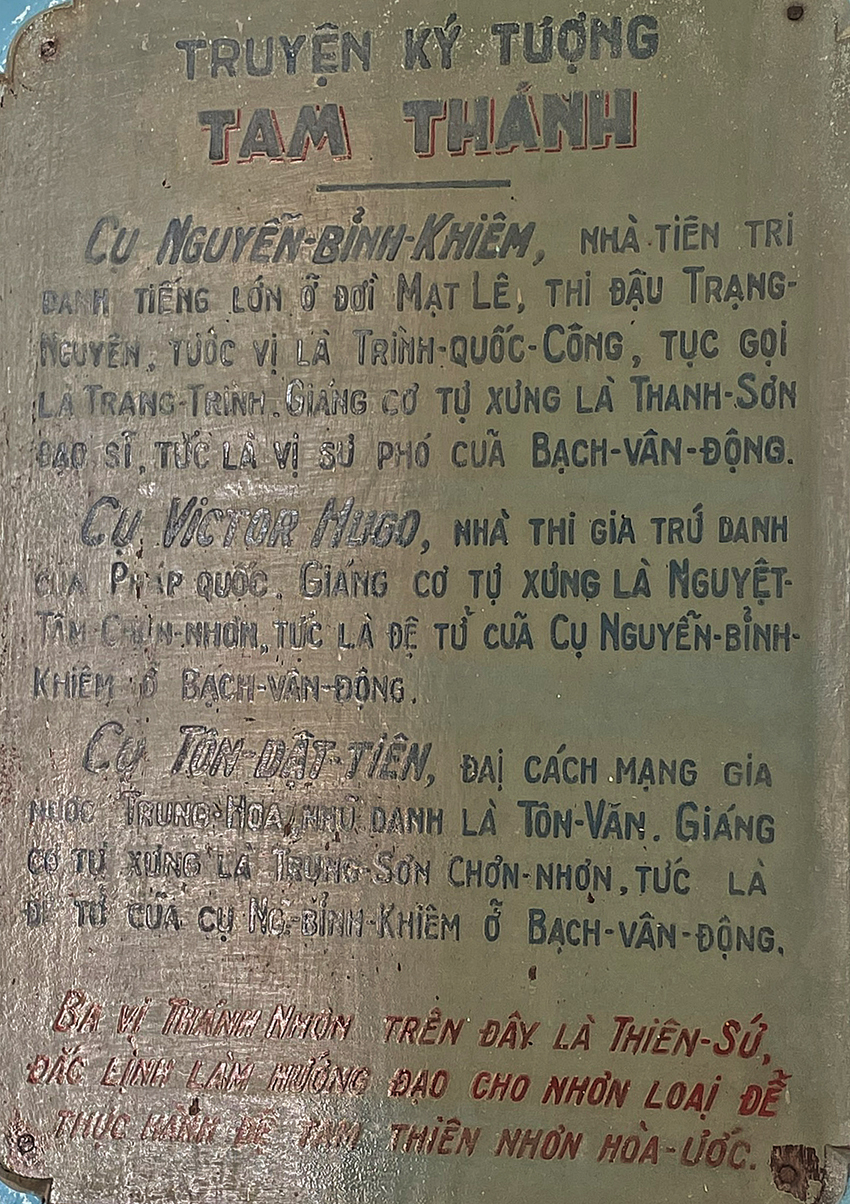 TRUYỆN KÝ TƯỢNG
TAM THÁNH
CỤ NGUYỄN-BỈNH-KHIÊM, NHÀ TIÊN TRI
DANH TIẾNG LỚN Ỡ ĐỜI MẠT LÊ, THI ĐẬU TRẠNG-
NGUYÊN, TƯỚC VỊ LÀ TRÌNH-QUỐC-CÔNG, TỤC GỌI
LÀ TRẠNG-TRÌNH. GIÁNG CƠ TỰ XƯNG LÀ THANH-SƠN
ĐẠO SĨ, TỨC LÀ VỊ SƯ PHÓ CUÃ BẠCH-VÂN-ĐỘNG.
CỤ VICTOR HUGO, NHÀ THI GIA TRỨ DANH
CỦA PHÁP QUỐC. GIÁNG CƠ TỰ XƯNG LÀ NGUYỆT-
TÂM-CHƠN-NHƠN, TỨC LÀ ĐỆ TỬ CUÃ CỤ NGUYỄN-BỈNH-
KHIÊM Ở BẠCH-VÂN-ĐỘNG.
CỤ TÔN-DẬT-TIÊN, ĐẠI CÁCH MẠNG GIA
NƯỚC TRUNG-HOA, NHŨ DANH LÀ TÔN-VĂN. GIÁNG
CƠ TỰ XƯNG LÀ TRUNG-SƠN CHƠN-NHƠN, TỨC LÀ
ĐỆ TỬ CŨA CỤ NG-BỈNH-KHIÊM Ở BẠCH-VÂN-ĐỘNG.
BA VỊ THÁNH NHƠN TRÊN ĐÂY LÀ THIÊN-SỨ,
ĐẮC LỊNH LÀM HƯỚNG ĐẠO CHO NHƠN LOẠI ĐỄ
THỰC HÀNH ĐỆ TAM THIÊN NHƠN HÒA-ƯỚC.